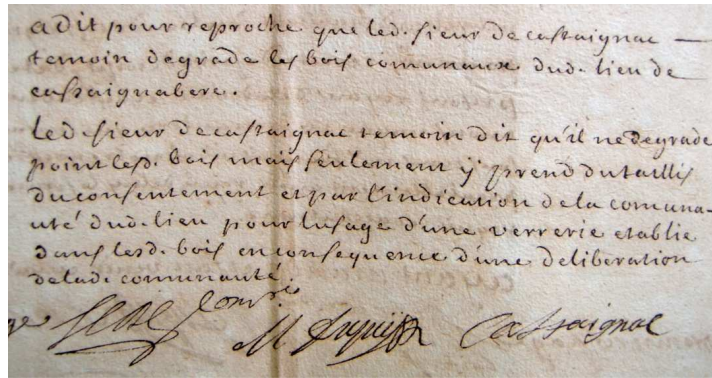 a dit pour reproche que led. sieur de castaignac —
temoin degrade les bois comunaux dud. lieu de
cassaignabere.
led. sieur de castaignac temoin dit qu'il ne degrade
point lesd. bois mais seulement y prend du taillis
du consentement et par l'indication de la comuna-
uté dud. lieu pour lusage d'une verrerie etablie
dans lesd. bois en consequence d'une deliberation
de lad. communauté.
Cassaignac